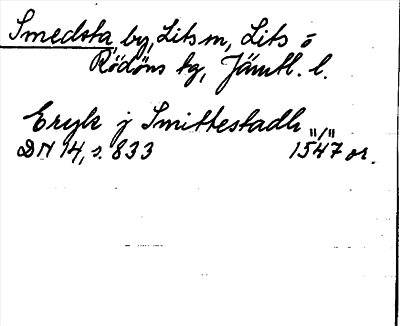 Smedsta, by, Lits sn, Lits o
Rödöns tg, Jämtl. l.
Eryk j Smittestadh "/"
DN 14, s. 833 1547 or.